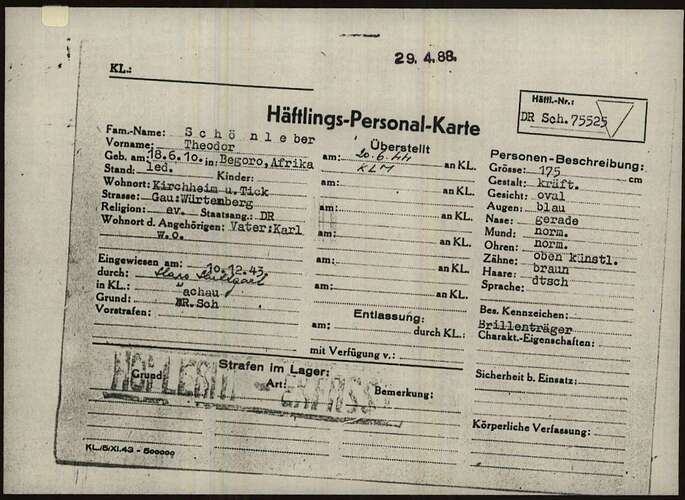 29.4.88.
KL.:
Häftlings-Personal-Karte
Häftl.-Nr.:
DR Sch. 75525
Fam.-Name: Schönleber
Vorname: Theodor
Geb. am: 18.6.10. in: Begoro, Afrika
Stand: led. Kinder:
Wohnort: Kirchheim u. Tick
Strasse: Gau: Würtemberg
Religion: ev. Staatsang.: DR
Wohnort d. Angehörigen: Vater: Karl
w.o.
Eingewiesen am: 10.12.43
durch: Stapo Stuttgart
in KL.: achau
Grund: DR.Sch
Vorstrafen:
Überstellt
am: 20.6.44 an KL.
KLM
am: an KL.
am: an KL.
am: an KL.
am: an KL.
am: an KL.
Entlassung:
am: durch KL.:
mit Verfügung v.:
Personen-Beschreibung:
Grösse: 175 cm
Gestalt: kräft.
Gesicht: oval
Augen: blau
Nase: gerade
Mund: norm.
Ohren: norm.
Zähne: oben künstl.
Haare: braun
Sprache: dtsch
Bes. Kennzeichen:
Brillenträger
Charakt.-Eigenschaften:
Sicherheit b. Einsatz:
Körperliche Verfassung:
Strafen im Lager:
Grund: Art: Bemerkung:
HOLLERITH ERFASST
KL/5/XI.43 - 500000